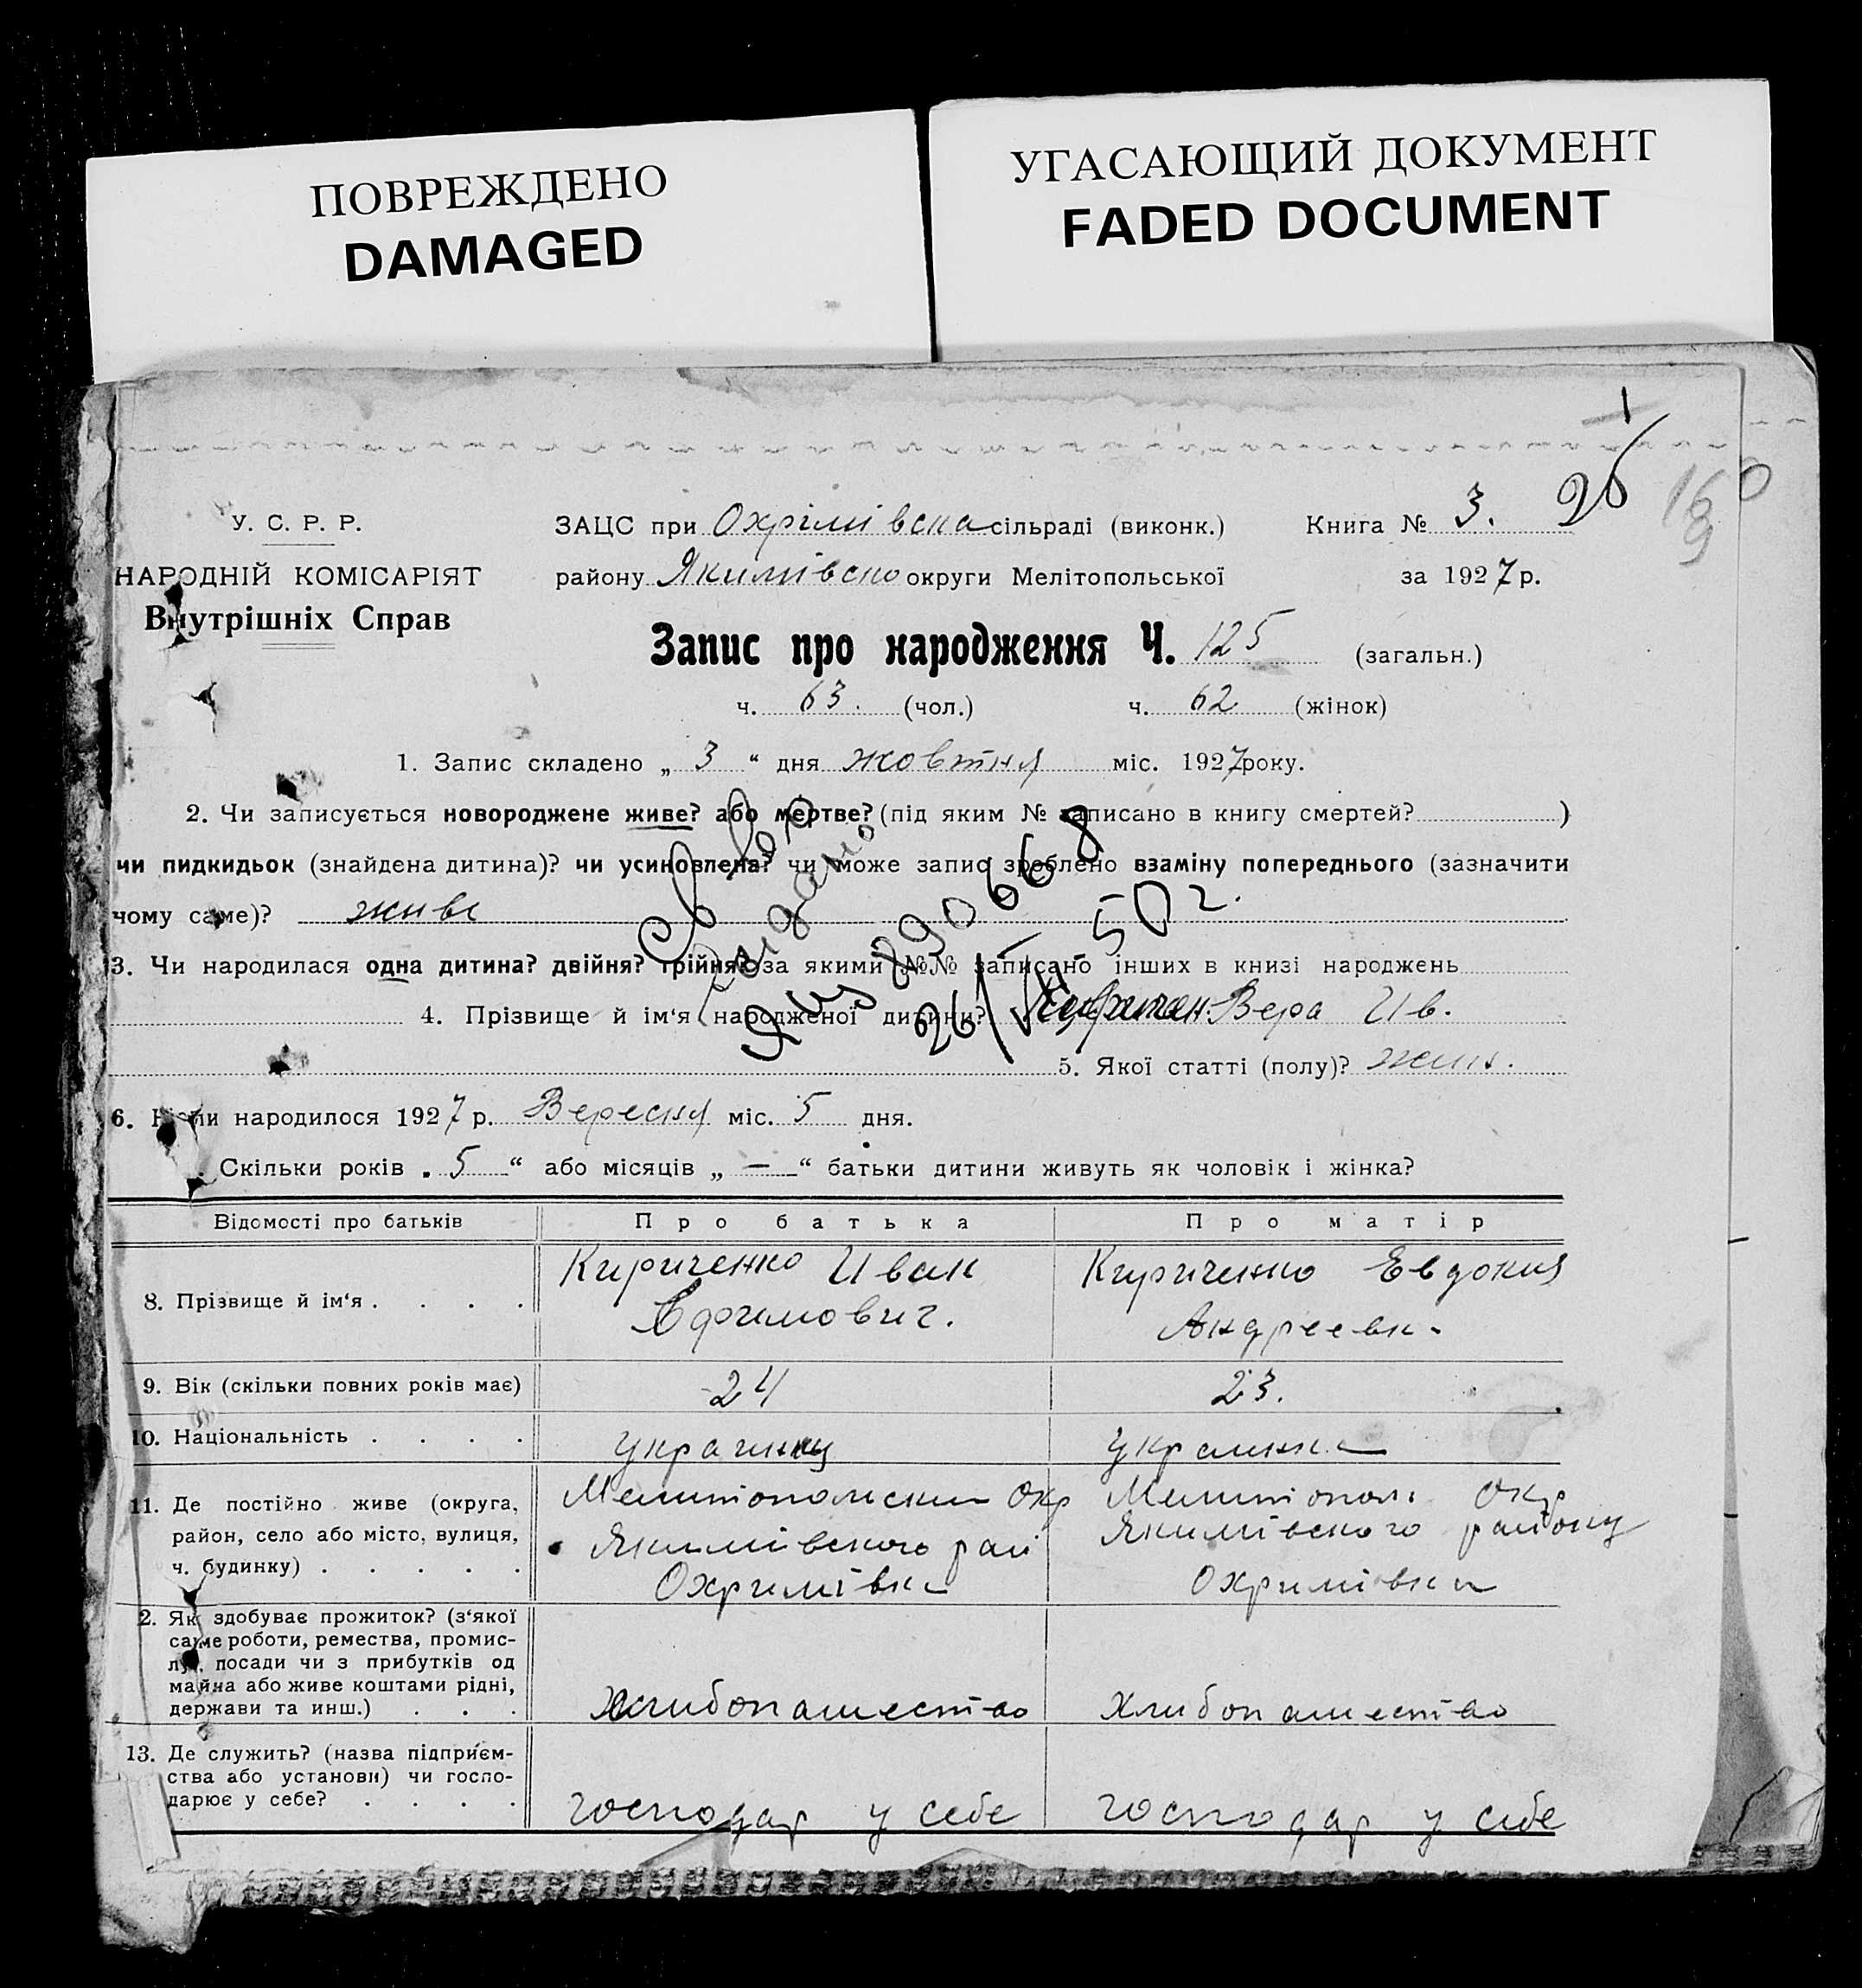 ПОВРЕЖДЕНО
DAMAGED
УГАСАЮЩИЙ ДОКУМЕНТ
FADED DOCUMENT
1
26
У. С. Р. Р.
НАРОДНІЙ КОМІСАРІЯТ
Внутрішніх Справ
ЗАЦС при Охрімівска сільраді (виконк.) Книга № 3.
району Якимівско округи Мелітопольської за 1927 р.
Запис про народження Ч. 125 (загальн.)
ч. 63. (чол.) ч. 62 (жінок)
1. Запис складено „ 3 “ дня жовтня міс. 1927 року.
2. Чи записується новороджене живе? або мертве? (під яким № записано в книгу смертей? )
чи пидкидьок (знайдена дитина)? чи усиновлена? чи може запис зроблено взаміну попереднього (зазначити
чому саме)? живе
3. Чи народилася одна дитина? двійня? трійня? за якими №№ записано інших в книзі народжень
4. Прізвище й ім‘я народженої дитини? Вера Ив.
5. Якої статті (полу)? жин.
6. Коли народилося 1927 р. Вересня міс. 5 дня.
Скільки років „ 5 “ або місяців „ — “ батьки дитини живуть як чоловік і жінка?
Відомості про батьків Про батька Про матір
8. Прізвище й ім‘я . . . . Кириченко Иван Кириченко Евдокия
Ефимович. Андреевн.
9. Вік (скільки повних років має) 24 23.
10. Національність . . . . украинец украинка
11. Де постійно живе (округа, Мелитопольский Окр Мелитополь Окр
район, село або місто, вулиця, Якимівского рай Якимівского району
ч. будинку) . . . . . Охримівка Охримівка
2. Як здобуває прожиток? (з‘якої
саме роботи, ремества, промис-
лу, посади чи з прибутків од
майна або живе коштами рідні,
держави та инш.) . . . хлибопашество хлибопашество
13. Де служить? (назва підприєм-
ства або установи) чи госпо-
дарює у себе? . . . . господар у себе господар у себе
Св-во
выдано
290668
26/VII-50 г.